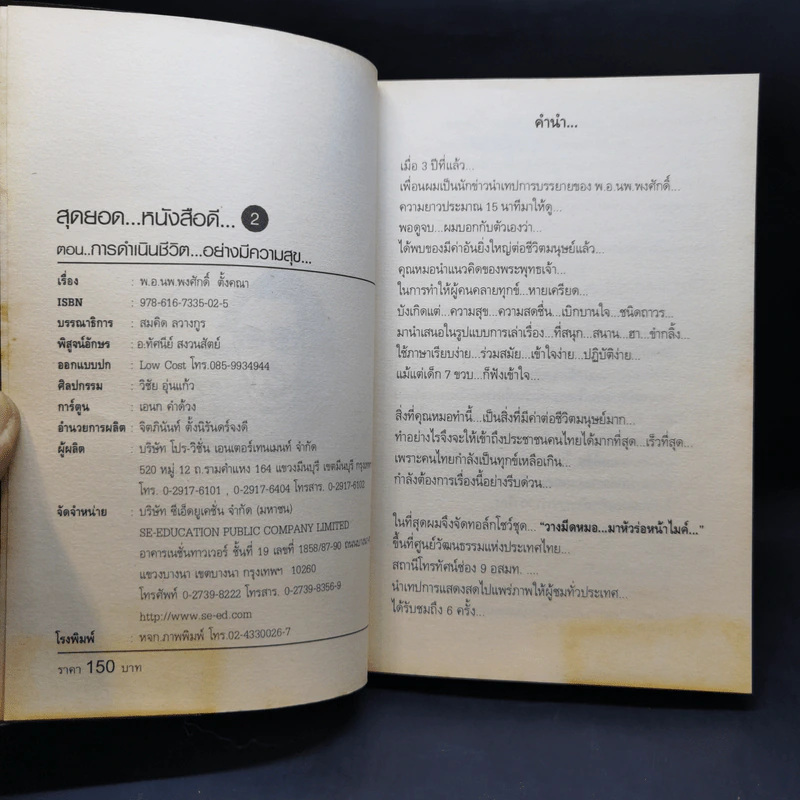 สุดยอด...หนังสือดี... 2
ตอน..การดำเนินชีวิต...อย่างมีความสุข...
เรื่อง : พ.อ.นพ.พงศักดิ์ ตั้งคณา
ISBN : 978-616-7335-02-5
บรรณาธิการ : สมคิด ลวางกูร
พิสูจน์อักษร : อ.ทัศนีย์ สงวนสัตย์
ออกแบบปก : Low Cost โทร.085-9934944
ศิลปกรรม : วิชัย อุ่นแก้ว
การ์ตูน : เอนก คำด้วง
อำนวยการผลิต : จิตภินันท์ ตั้งนิรันดร์จงดี
ผู้ผลิต : บริษัท โปร-วิชั่น เอนเตอร์เทนเมนท์ จำกัด
520 หมู่ 12 ถ.รามคำแหง 164 แขวงมีนบุรี เขตมีนบุรี
โทร. 0-2917-6101 , 0-2917-6404 โทรสาร. 0-2917-6102
จัดจำหน่าย : บริษัท ซีเอ็ดยูเคชั่น จำกัด (มหาชน)
SE-EDUCATION PUBLIC COMPANY LIMITED
อาคารเนชั่นทาวเวอร์ ชั้นที่ 19 เลขที่ 1858/87-90
แขวงบางนา เขตบางนา กรุงเทพฯ 10260
โทรศัพท์ 0-2739-8222 โทรสาร. 0-2739-8356-9
http://www.se-ed.com
โรงพิมพ์ : หจก.ภาพพิมพ์ โทร.02-4330026-7
ราคา 150 บาท
คำนำ...
เมื่อ 3 ปีที่แล้ว...
เพื่อนผมเป็นนักข่าวนำเทปการบรรยายของ พ.อ.นพ.พงศักดิ์...
ความยาวประมาณ 15 นาทีมาให้ดู...
พอดูจบ...ผมบอกกับตัวเองว่า...
ได้พบของมีค่าอันยิ่งใหญ่ต่อชีวิตมนุษย์แล้ว...
คุณหมอนำแนวคิดของพระพุทธเจ้า...
ในการทำให้ผู้คนคลายทุกข์...หายเครียด...
บังเกิดแต่...ความสุข...ความสดชื่น...เบิกบานใจ...ชนิดถาวร...
มานำเสนอในรูปแบบการเล่าเรื่อง...ที่สนุก...สนาน...ฮา...ขำกลิ้ง...
ใช้ภาษาเรียบง่าย...ร่วมสมัย...เข้าใจง่าย...ปฏิบัติง่าย...
แม้แต่เด็ก 7 ขวบ...ก็ฟังเข้าใจ...
สิ่งที่คุณหมอทำนี้...เป็นสิ่งที่มีค่าต่อชีวิตมนุษย์มาก...
ทำอย่างไรจึงจะให้เข้าถึงประชาชนคนไทยได้มากที่สุด...เร็วที่สุด...
เพราะคนไทยกำลังเป็นทุกข์เหลือเกิน...
กำลังต้องการเรื่องนี้อย่างรีบด่วน...
ในที่สุดผมจึงจัดทอล์กโชว์ชุด... "วางมีดหมอ...มาหัวร่อหน้าไมค์..."
ขึ้นที่ศูนย์วัฒนธรรมแห่งประเทศไทย...
สถานีโทรทัศน์ช่อง 9 อสมท. ....
นำเทปการแสดงสดไปแพร่ภาพให้ผู้ชมทั่วประเทศ...
ได้รับชมถึง 6 ครั้ง...